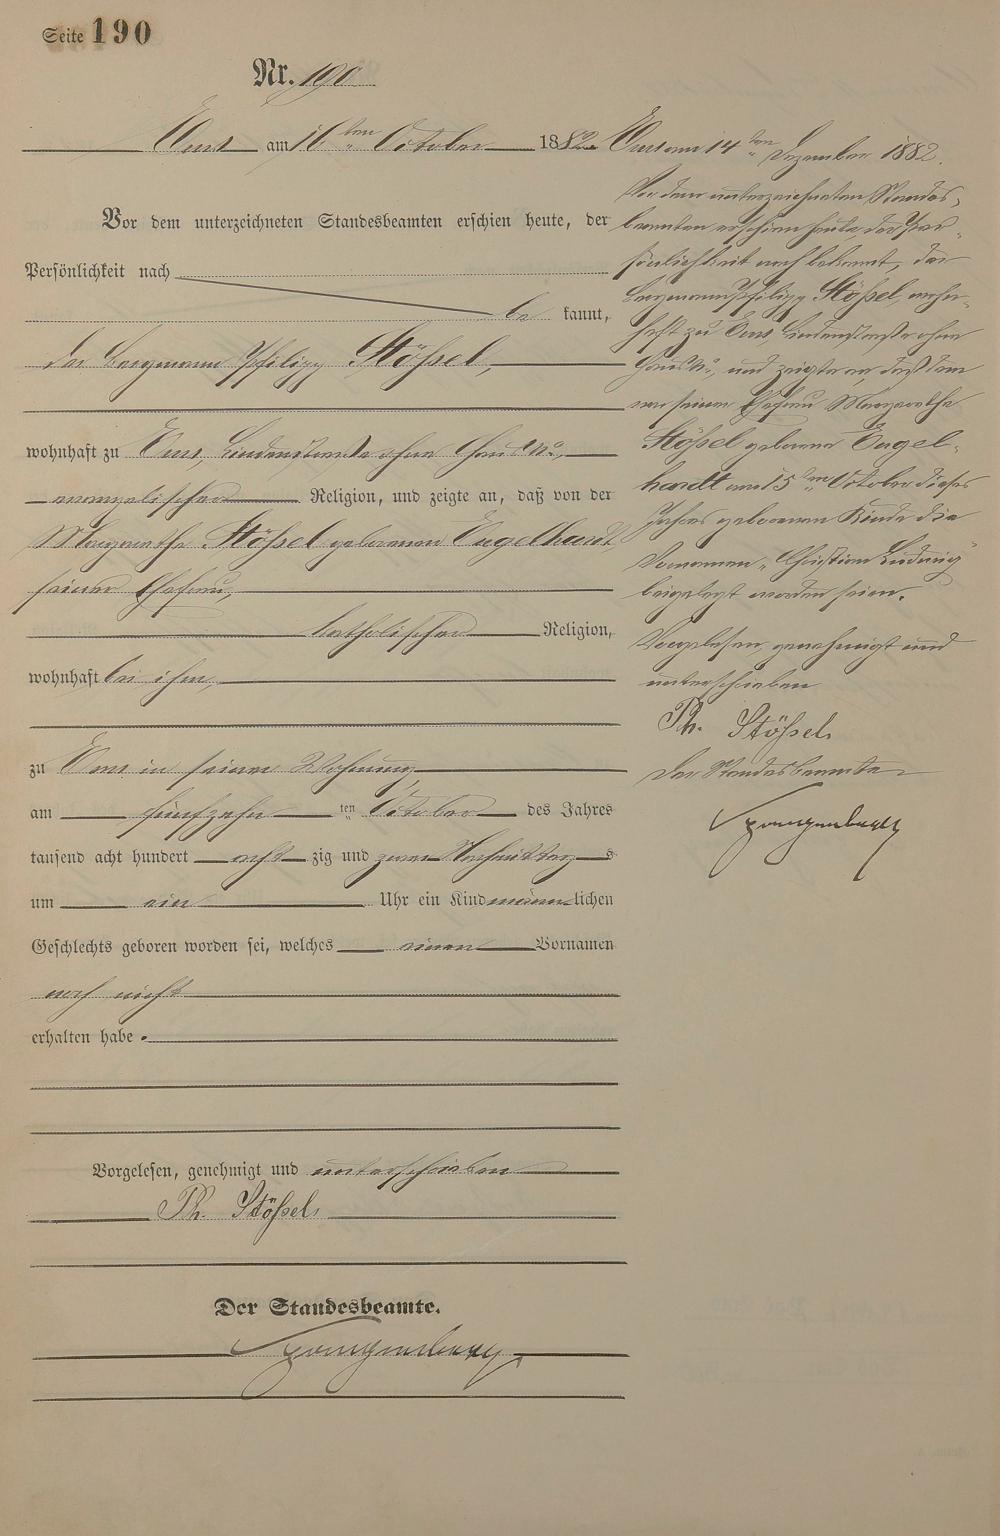 Seite 190
Nr. 190
Ems am 16ten October 1882
Vor dem unterzeichneten Standesbeamten erschien heute, der
Persönlichkeit nach
be kannt,
der Bergmann Philipp Stößel,
wohnhaft zu Ems, Lindenstraße ohne Haus No.,
evangelischer Religion, und zeigte an, daß von der
Margarethe Stößel geborenen Engelhardt
seiner Ehefrau,
katholischer Religion,
wohnhaft bei ihm,
zu Ems in seiner Wohnung,
am fünfzehn ten October des Jahres
tausend acht hundert acht zig und zwei Nachmittags
um ein Uhr ein Kind männlichen
Geschlechts geboren worden sei, welches einen Vornamen
noch nicht
erhalten habe.
Vorgelesen, genehmigt und unterschrieben
Ph. Stößel.
Der Standesbeamte.
Ems am 14ten Dezember 1882.
Vor dem unterzeichneten Standes-
beamten erschien heute, der Per-
sönlichkeit nach bekannt, der
Bergmann Philipp Stößel, wohn-
haft zu Ems, Lindenstraße ohne
Haus No., und zeigte an, daß dem
von seiner Ehefrau Margarethe
Stößel geborene Engel-
hardt am 15ten October dieses
Jahres geborenen Kinde die
Vornamen „Christian Ludwig"
beigelegt worden seien.
Vorgelesen, genehmigt und
unterschrieben
Ph. Stößel.
Der Standesbeamte